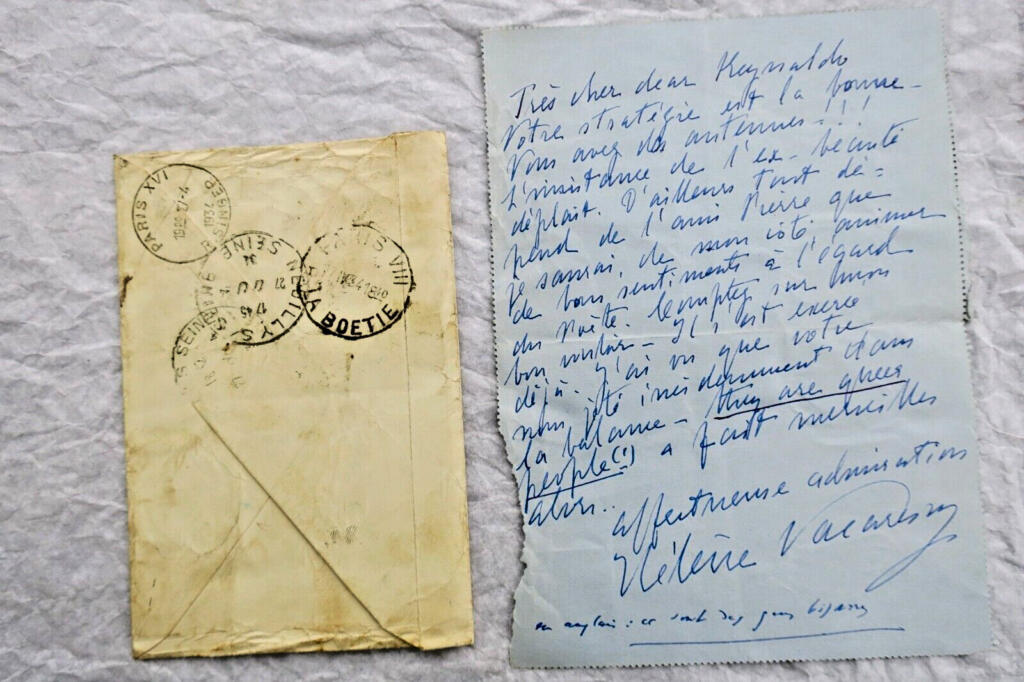 PARIS XVI
1935 17-4
R. SINGER
1934
NEUILLY S. SEINE
SEINE
27
1745
34
PARIS VIII
1934 1840
R. LA BOETIE
SEINE
Très cher dear Reynaldo
Votre stratégie est la bonne -
Vous avez des antennes - !!!
L'insistance de l'ex-beauté
déplait. D'ailleurs tout dé-
pend de l'ami Pierre que
je saurai, de mon côté, animer
de bons sentiments à l'égard
du Poète. Comptez sur mon
bon vouloir - Il s'est exercé
déjà - J'ai vu que votre
nom jeté incidemment dans
la balance - they are queer
people (!) a fait merveilles
alors..
affectueuse admiration
Hélène Vacaresco
en anglais : ce sont des gens bizarres